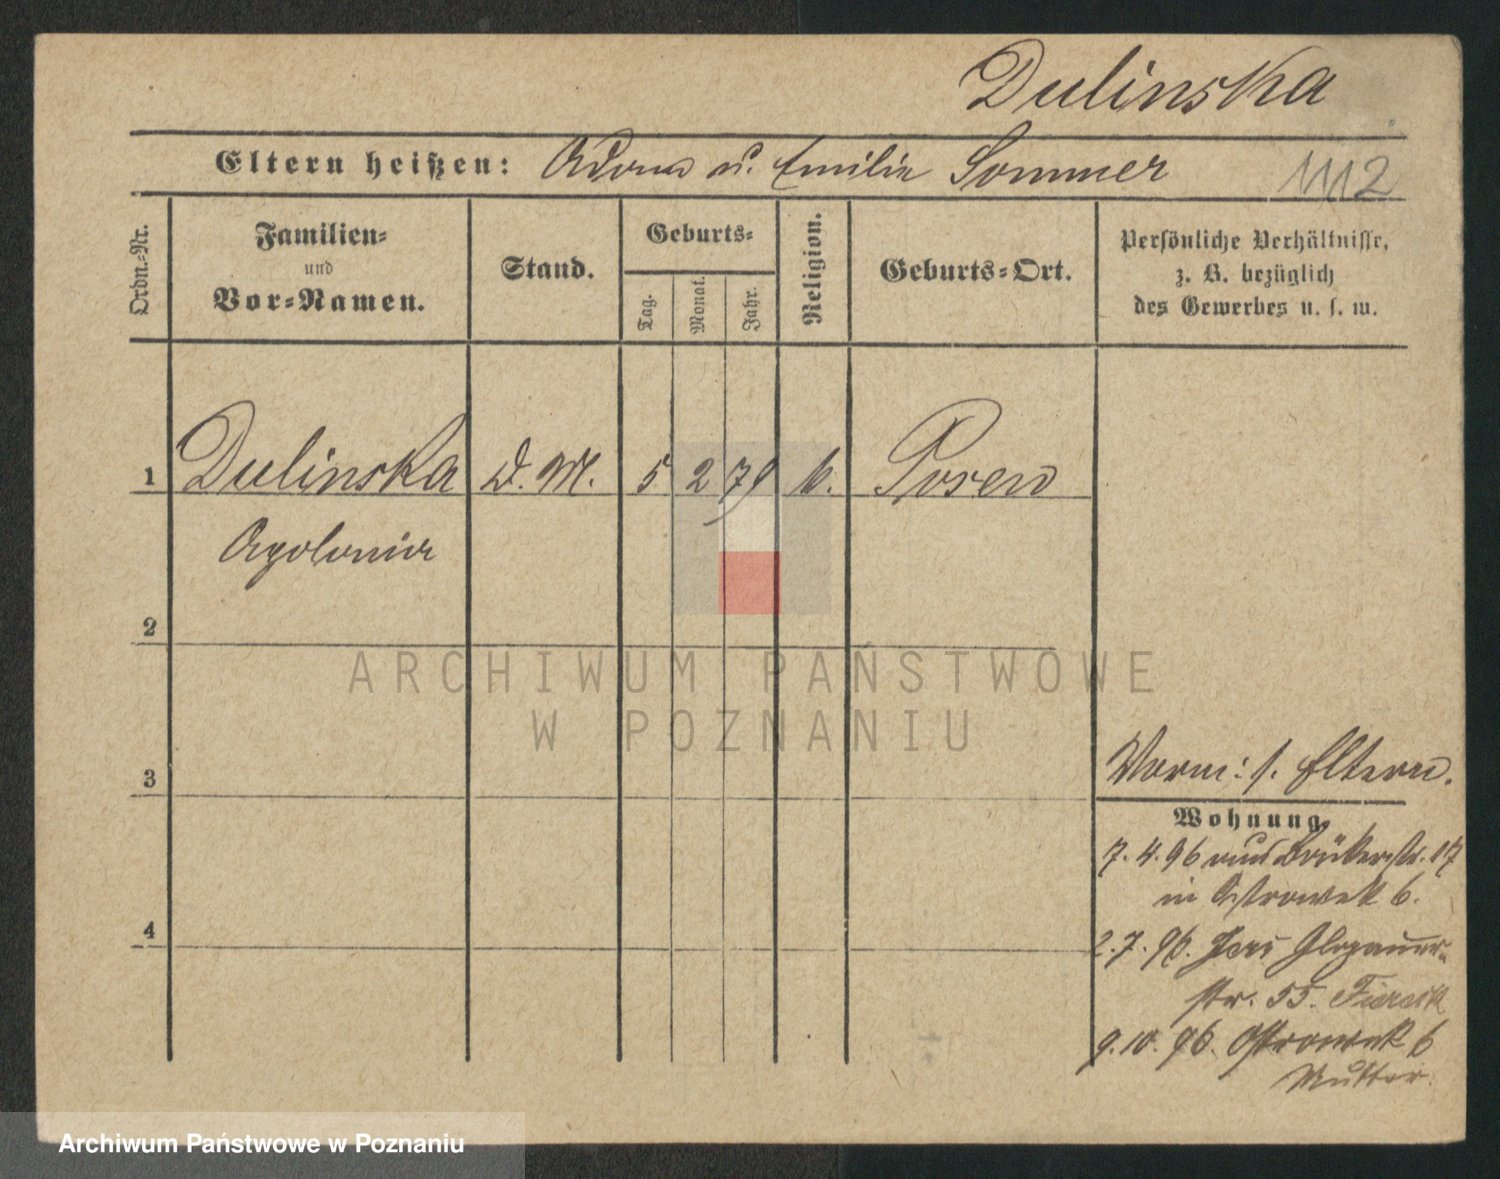 Dulinska
Eltern heißen: Adam u. Emilie Sommer 1112
Ordn.-Nr.
Familien-
und
Vor-Namen.
Stand.
Geburts-
Tag.
Monat.
Jahr.
Religion.
Geburts-Ort.
Persönliche Verhältnisse,
z. B. bezüglich
des Gewerbes u. s. w.
1 Dulinska D. M. 5 2 79 k. Posen
Apolonia
2
3
4
Vorm: s. Eltern.
Wohnung.
7. 4. 96 aus 17
in Ostrowek 6.
2. 7. 96. Glogauer-
str. 55.
9. 10. 96. Ostrowek 6
Mutter.
ARCHIWUM PAŃSTWOWE
W POZNANIU
Archiwum Państwowe w Poznaniu